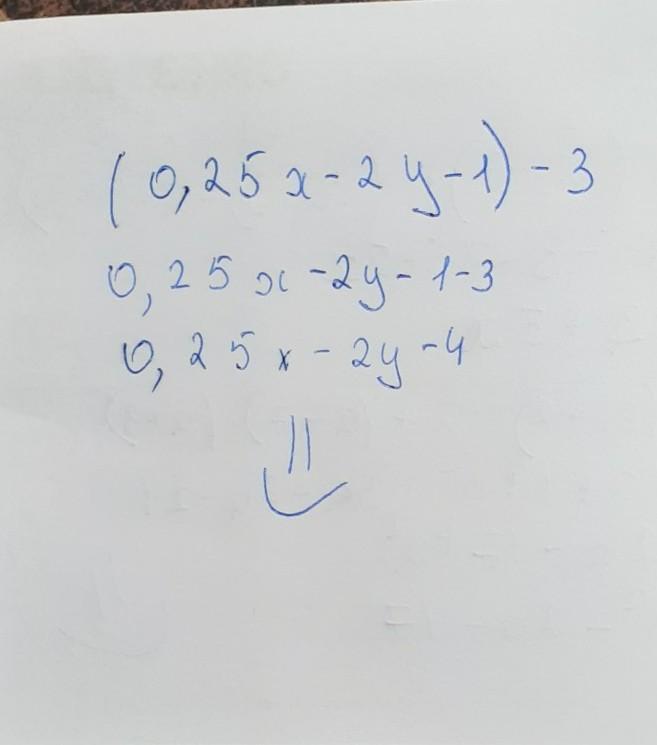 (0,25x-2y-1)-3
0,25x-2y-1-3
0,25x-2y-4